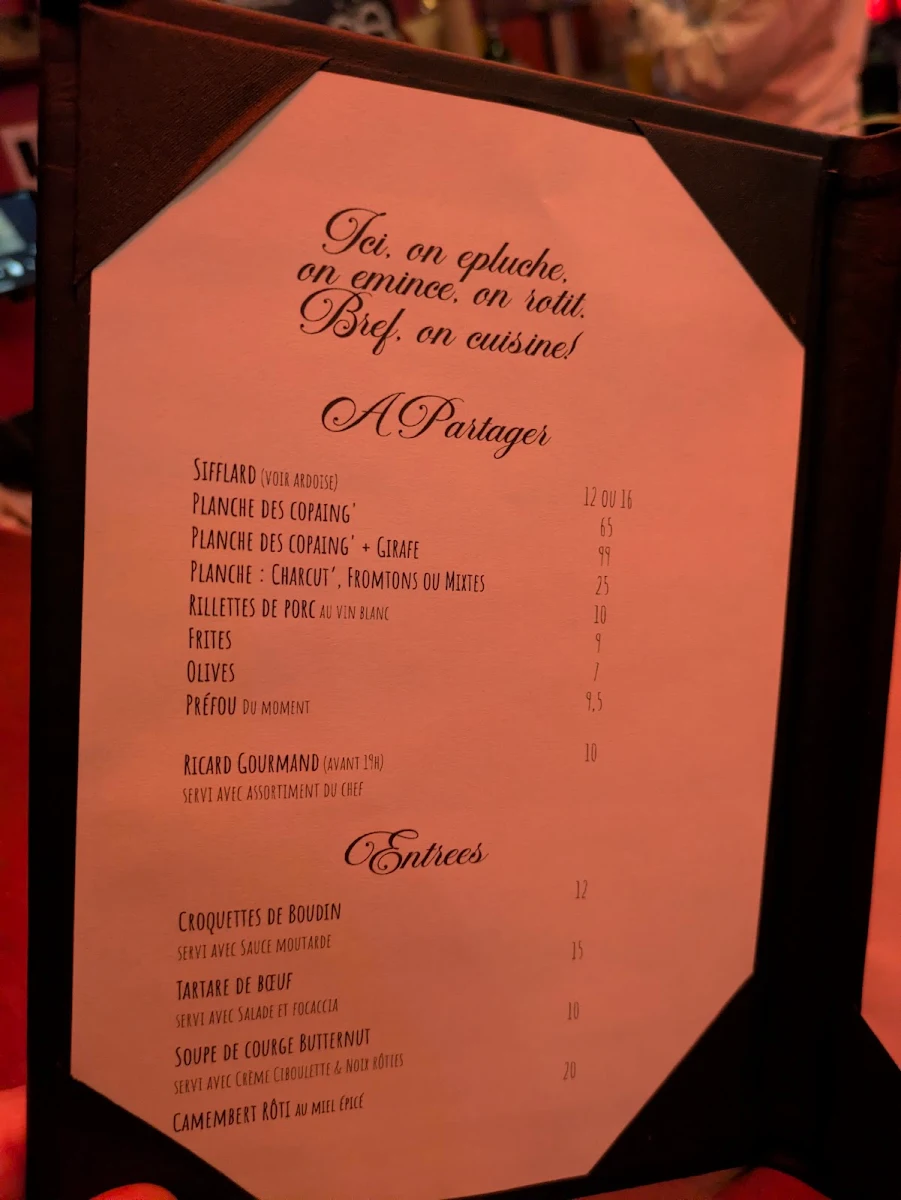 Ici, on epluche,
on emince, on rotit.
Bref, on cuisine!
A Partager
Sifflard (voir ardoise) 12 ou 16
Planche des copaing' 65
Planche des copaing' + Girafe 99
Planche : Charcut', Fromtons ou Mixtes 25
Rillettes de porc au vin blanc 10
Frites 9
Olives 7
Préfou Du moment 9,5
Ricard Gourmand (avant 19h) 10
servi avec assortiment du chef
Entrees
Croquettes de Boudin 12
servi avec Sauce moutarde
Tartare de Bœuf 15
servi avec Salade et focaccia
Soupe de courge Butternut 10
servi avec Crème Ciboulette & Noix rôties
Camembert Rôti au miel épicé 20